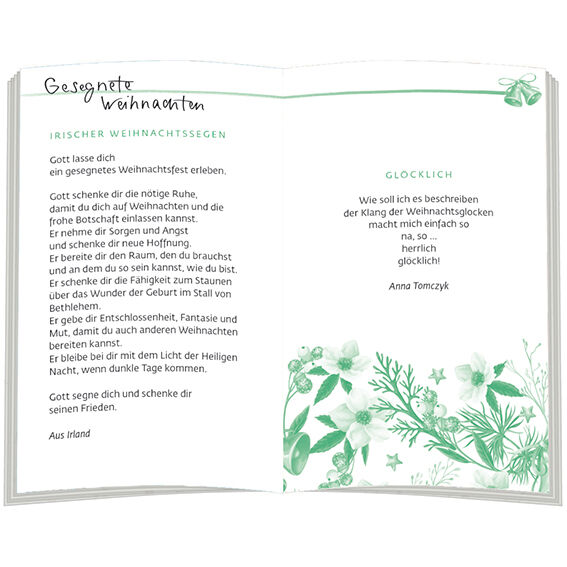 Gesegnete
Weihnachten
IRISCHER WEIHNACHTSSEGEN
Gott lasse dich
ein gesegnetes Weihnachtsfest erleben.
Gott schenke dir die nötige Ruhe,
damit du dich auf Weihnachten und die
frohe Botschaft einlassen kannst.
Er nehme dir Sorgen und Angst
und schenke dir neue Hoffnung.
Er bereite dir den Raum, den du brauchst
und an dem du so sein kannst, wie du bist.
Er schenke dir die Fähigkeit zum Staunen
über das Wunder der Geburt im Stall von
Bethlehem.
Er gebe dir Entschlossenheit, Fantasie und
Mut, damit du auch anderen Weihnachten
bereiten kannst.
Er bleibe bei dir mit dem Licht der Heiligen
Nacht, wenn dunkle Tage kommen.
Gott segne dich und schenke dir
seinen Frieden.
Aus Irland
GLÖCKLICH
Wie soll ich es beschreiben
der Klang der Weihnachtsglocken
macht mich einfach so
na, so ...
herrlich
glöcklich!
Anna Tomczyk